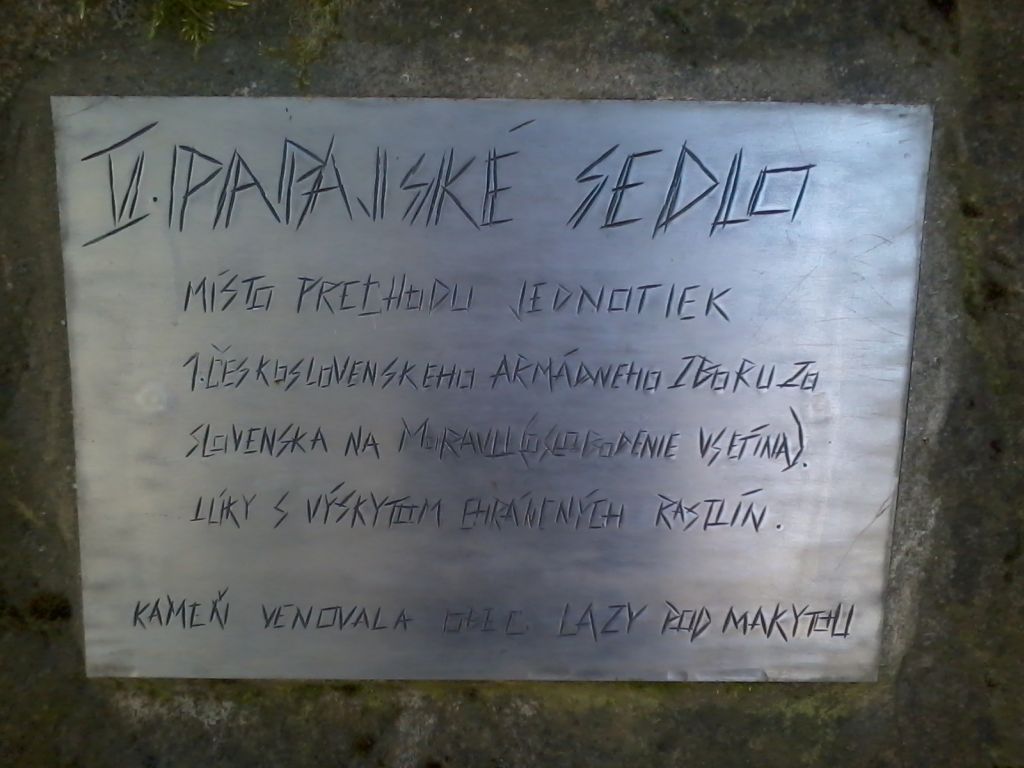 VI. PAPAJSKÉ SEDLO
MÍSTO PRECHODU JEDNOTIEK
1. ČESKOSLOVENSKEHO ARMÁDNEHO ZBORU ZO
SLOVENSKA NA MORAVU (ÓSLOBODENIE VSETÍNA).
LÚKY S VÝSKYTOM CHRÁNENÝCH RASTLÍN.
KAMEŇ VENOVALA OBEC LAZY POD MAKYTOU